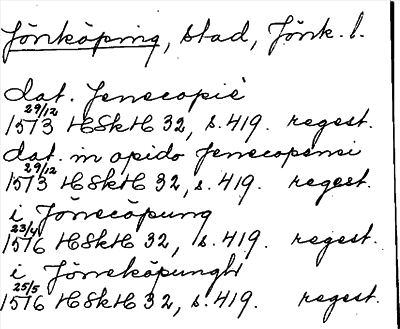 Jönköping, stad, Jönk. l.
dat. Jenecopie
1573 29/12 HSkH 32, s. 419. regest.
dat. in opido Jenecopensi
1573 29/12 HSkH 32, s. 419. regest.
i Jönecöpung
1576 23/4 HSkH 32, s. 419. regest.
i Jöneköpungh
1576 25/5 HSkH 32, s. 419. regest.